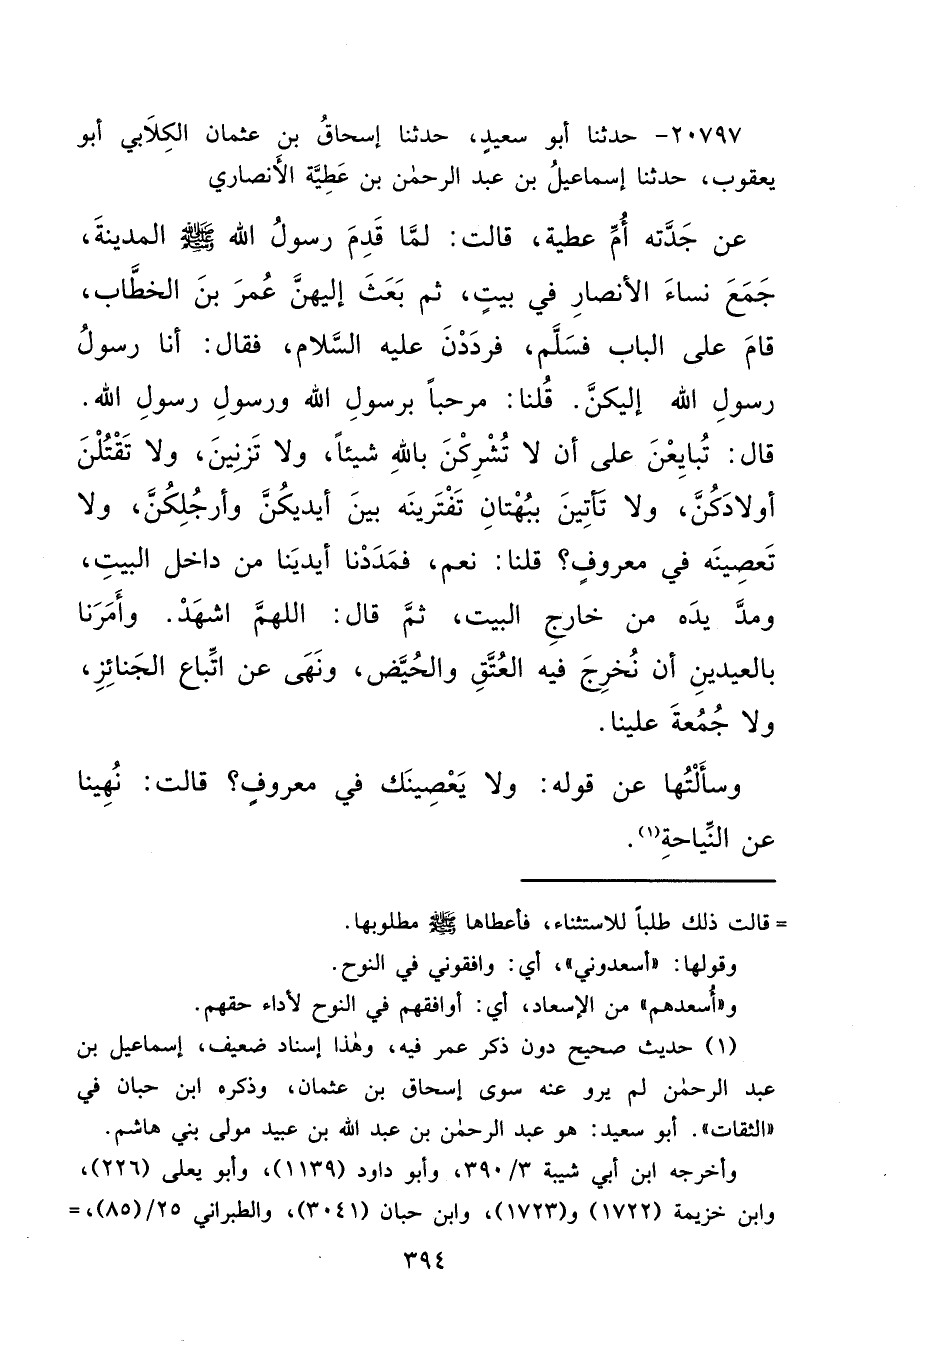 ٢٠٧٩٧- حدثنا أبو سعيدٍ، حدثنا إسحاقُ بن عثمان الكِلَابي أبو
يعقوب، حدثنا إسماعيلُ بن عبد الرحمٰن بن عَطِيَّة الأَنصاري
عن جَدَّته أُمِّ عطية، قالت: لمَّا قَدِمَ رسولُ الله ﷺ المدينةَ،
جَمَعَ نساءَ الأنصارِ في بيتٍ، ثم بَعَثَ إليهنَّ عُمرَ بنَ الخطَّاب،
قامَ على الباب فسَلَّم، فردَدْنَ عليه السَّلام، فقال: أنا رسولُ
رسولِ الله إليكنَّ. قُلنا: مرحباً برسولِ الله ورسولِ رسولِ الله.
قال: تُبايِعْنَ على أن لا تُشْرِكْنَ باللهِ شيئاً، ولا تَزنِينَ، ولا تَقْتُلْنَ
أولادَكُنَّ، ولا تَأتِينَ ببُهْتانٍ تَفْتَرينَه بينَ أيديكُنَّ وأرجُلِكُنَّ، ولا
تَعصِينَه في معروفٍ؟ قلنا: نعم، فمَدَدْنا أيديَنا من داخل البيتِ،
ومدَّ يدَه من خارجِ البيت، ثمَّ قال: اللهمَّ اشهَدْ. وأَمَرَنا
بالعيدينِ أن نُخرِجَ فيه العُتَّقِ والحُيَّض، ونَهَى عن اتِّباع الجَنائِزِ،
ولا جُمُعةَ علينا.
وسألْتُها عن قوله: ولا يَعْصِينَك في معروفٍ؟ قالت: نُهِينا
عن النِّياحةِ(١).
= قالت ذلك طلباً للاستثناء، فأعطاها ﷺ مطلوبها.
وقولها: «أسعدوني»، أي: وافقوني في النوح.
و«أُسعدهم» من الإسعاد، أي: أوافقهم في النوح لأداء حقهم.
(١) حديث صحيح دون ذكر عمر فيه، وهٰذا إسناد ضعيف، إسماعيل بن
عبد الرحمٰن لم يرو عنه سوى إسحاق بن عثمان، وذكره ابن حبان في
«الثقات». أبو سعيد: هو عبد الرحمٰن بن عبد الله بن عبيد مولى بني هاشم.
وأخرجه ابن أبي شيبة ٣/ ٣٩٠، وأبو داود (١١٣٩)، وأبو يعلى (٢٢٦)،
وابن خزيمة (١٧٢٢) و(١٧٢٣)، وابن حبان (٣٠٤١)، والطبراني ٢٥/(٨٥)، =
٣٩٤